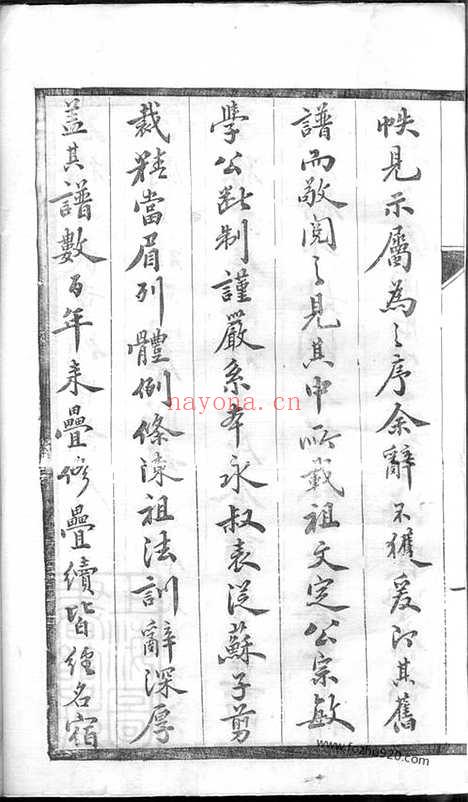 帙見示屬為之序余辭不獲爰即其舊
譜而敬閱之見其中所載祖文定公宗敏
學公斷制謹嚴系本永叔表從蘇子剪
裁精當眉列體例條陳祖法訓辭深厚
蓋其譜數百年來疊修疊續皆經名宿
nayona.cn
www.fozhu920.com